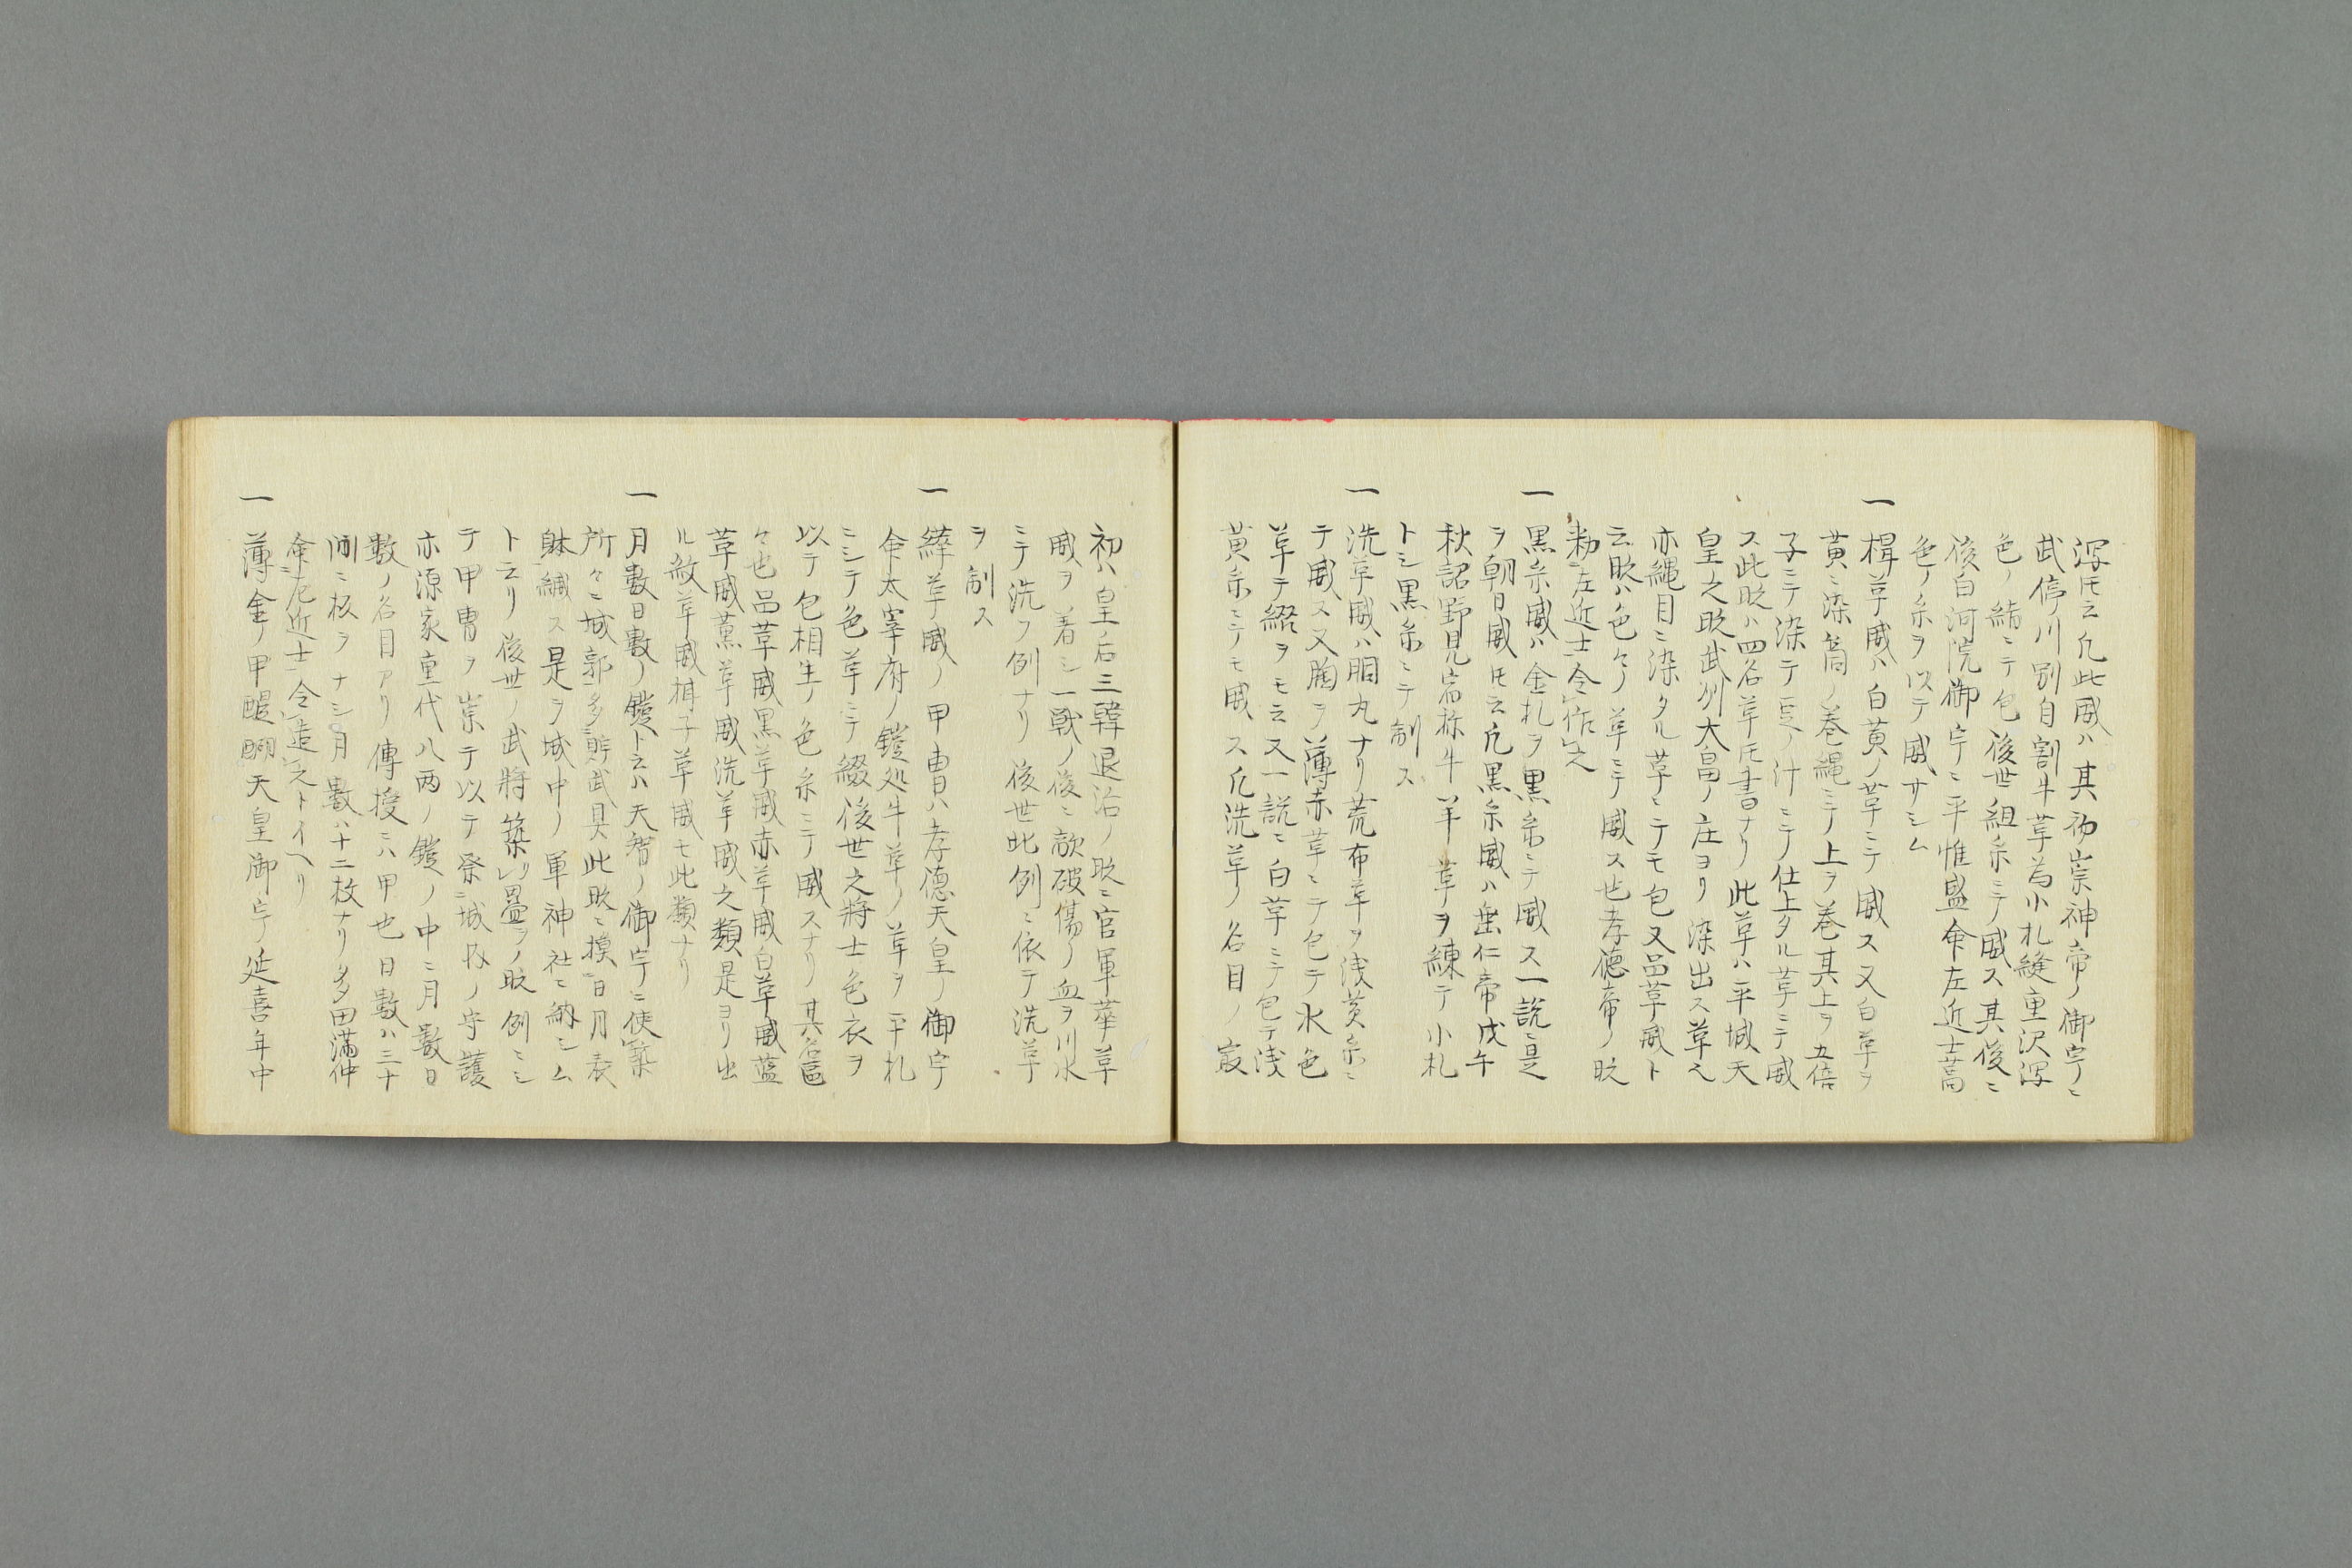 深氏云凡此威ハ其初崇神帝ノ御宇ニ
武停川別自割牛革為小札縫重沢深
色ノ結ニテ包後世組糸ニテ威ス其後ニ
後白河院御宇ニ平惟盛命左近士高
色ノ糸ヲ以テ威サシム
一 楫革威ハ白黄ノ革ニテ威ス又白革ヲ
黄ニ染筒ノ巻縄ニテ上ヲ巻其上ヲ五倍
子ニテ染テ豆ノ汁ニテ仕上タル革ニテ威
ス此時ハ四名革氏書ナリ此草ハ平城天
皇之時武州大畠ノ庄ヨリ染出ス草也
亦縄目ニ染タル革ニテモ包又品革威ト
云時ハ色々ノ革ニテ威ス也孝徳帝ノ時
勅左近士令作之
一 黒糸威ハ金札ヲ黒糸ニテ威ス一説ニ是
ヲ朝日威氏云凡黒糸威ハ垂仁帝戊午
秋詔野見宿祢牛羊革ヲ練テ小札
トシ黒糸ニテ制ス
一 洗革威ハ胴丸ナリ荒布革ヲ浅黄糸ニ
テ威ス又胸ヲ薄赤革ニテ包テ水色
革テ綴ヲモ云又一説ニ白革ミテ包テ浅
黄糸ニテモ威ス凡洗革ノ名目ノ最
初ハ皇后三韓退治ノ時ニ官軍華革
威ヲ着シ一戰ノ後ニ敵破傷ノ血ヲ川水
ニテ洗フ例ナリ後世此例ニ依テ洗革
ヲ制ス
一 緯革威ノ甲冑ハ孝徳天皇ノ御宇
命太宰府ノ鎧処牛革ノ革ヲ平札
ニシテ色革ニテ綴後世之將士色衣ヲ
以テ包相生ノ色糸ニテ威スナリ其名區
々也品革威黒革威赤革威白革威藍
革威薫革威洗革威之類是ヨリ出
ル紋革威楫子革威モ此類ナリ
一 月數日數ノ鎧ト云ハ天智ノ御宇ニ使築
所々ニ城郭多貯武具此時ニ摸日月表
躰縅ス是ヲ城中ノ軍神社ニ納シム
ト云リ後世ノ武將築レ壘ヲノ時例ニシ
テ甲冑ヲ崇テ以テ祭ニ城取ノ守護
亦源家重代八両ノ鎧ノ中ニ月數日
數ノ名目アリ傳授ニハ甲也日數ハ三十
間ニ板ヲナシ月數ハ十二枚ナリ多田満仲
命左近士令造之トイヘリ
一 薄金ノ甲醍醐天皇御宇ノ延喜年中